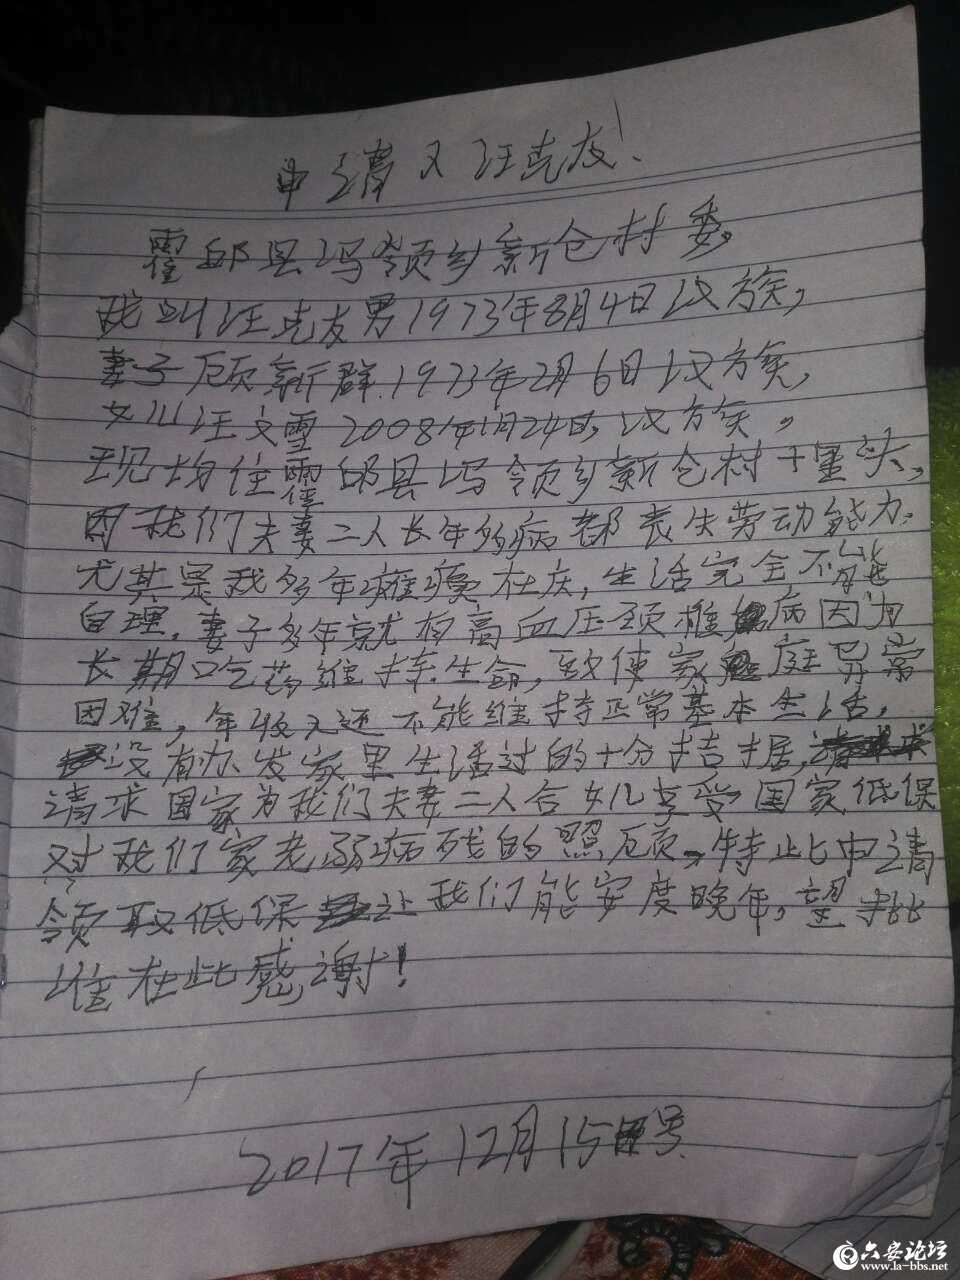 申请人汪克友
霍邱县冯领乡新仓村委
我叫汪克友男1973年8月4日汉方族,
妻子顾新群.1973年2月6日汉方族,
女儿汪文雪2008年1月24日,汉方族。
现均住霍邱县冯领乡新仓村十里头,
因我们夫妻二人长年多病都丧失劳动能力.
尤其是我多年瘫痪在床,生活完全不能
自理.妻子多年就有高血压颈椎病因为
长期吃药维持生命,致使家庭异常
困难,年收入还不能维持正常基本生活,
没有办发家里生活过的十分拮据,
请求国家为我们夫妻二人合女儿享受国家低保
对我们家老弱病残的照顾,特此申请
领取低保让我们能安度晚年,望批
准在此感谢!
2017年12月15号
六安论坛
www.la-bbs.net